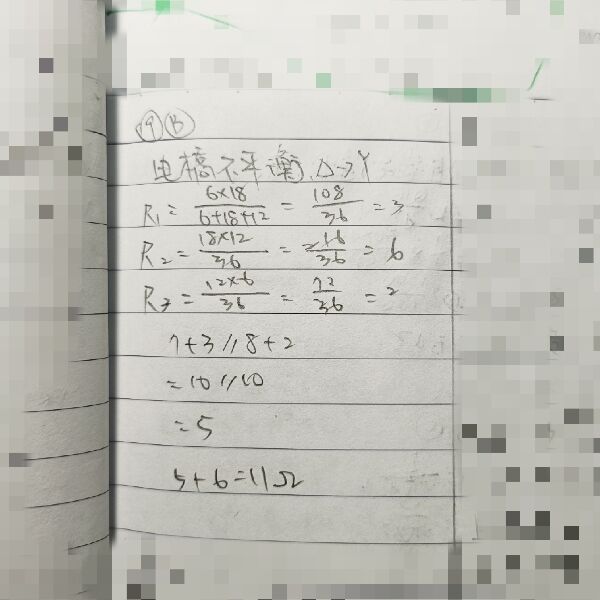 9 B
电桥不平衡, Δ→Y
R₁ = 6×18 / 6+18+12 = 108 / 36 = 3
R₂ = 18×12 / 36 = 216 / 36 = 6
R₃ = 12×6 / 36 = 72 / 36 = 2
7+3 // 8+2
= 10 // 10
= 5
5+6=11Ω